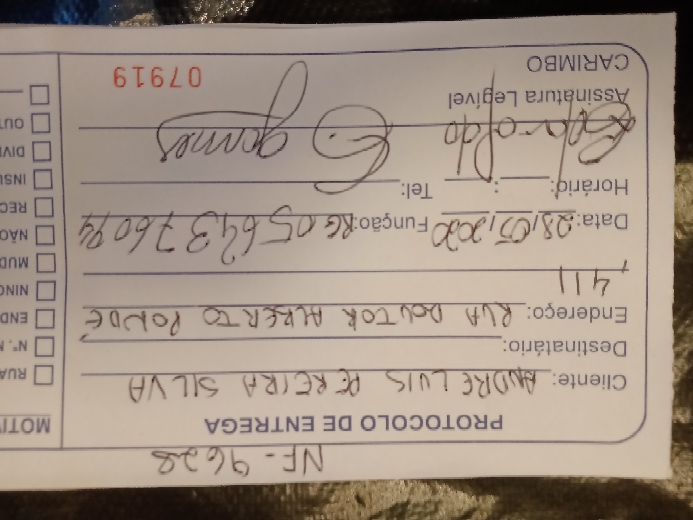 NF-9628
PROTOCOLO DE ENTREGA
Cliente: ANDRE LUIS PEREIRA SILVA
Destinatário:
Endereço: RUA DOUTOR ALBERTO
, 411
Data: 28/05/2020 Função: RG
Horário: : Tel:
Assinatura Legível
CARIMBO
07919
MOTI
RUA
Nº.
END
NÃO
MUD
REC
INSU
DIVE
OUT